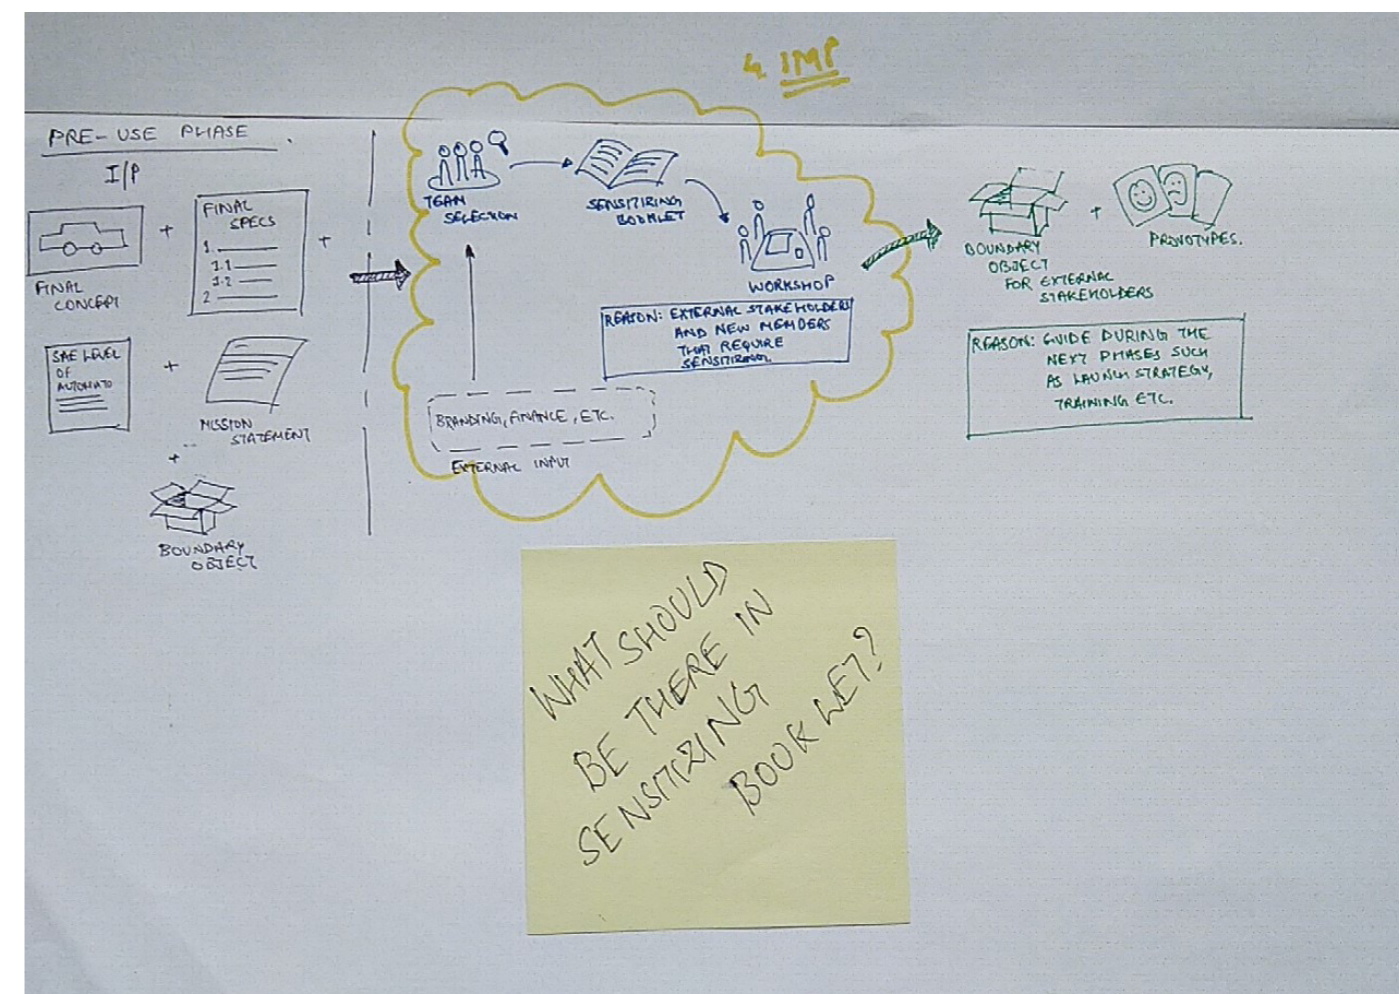 4. IMP
PRE-USE PHASE.
I/P
FINAL
CONCEPT
+
FINAL
SPECS
1.
1.1
1.2
2
+
SAE LEVEL
OF
AUTOMATO
+
MISSION
STATEMENT
+
BOUNDARY
OBJECT
TEAM
SELECTION
SENSITIZING
BOOKLET
WORKSHOP
REASON: EXTERNAL STAKEHOLDERS
AND NEW MEMBERS
THAT REQUIRE
SENSITIZING
BRANDING, FINANCE, ETC.
EXTERNAL INPUT
BOUNDARY
OBJECT
FOR EXTERNAL
STAKEHOLDERS
+
PROVOTYPES.
REASON: GUIDE DURING THE
NEXT PHASES SUCH
AS LAUNCH STRATEGY,
TRAINING ETC.
WHAT SHOULD
BE THERE IN
SENSITIZING
BOOKLET?